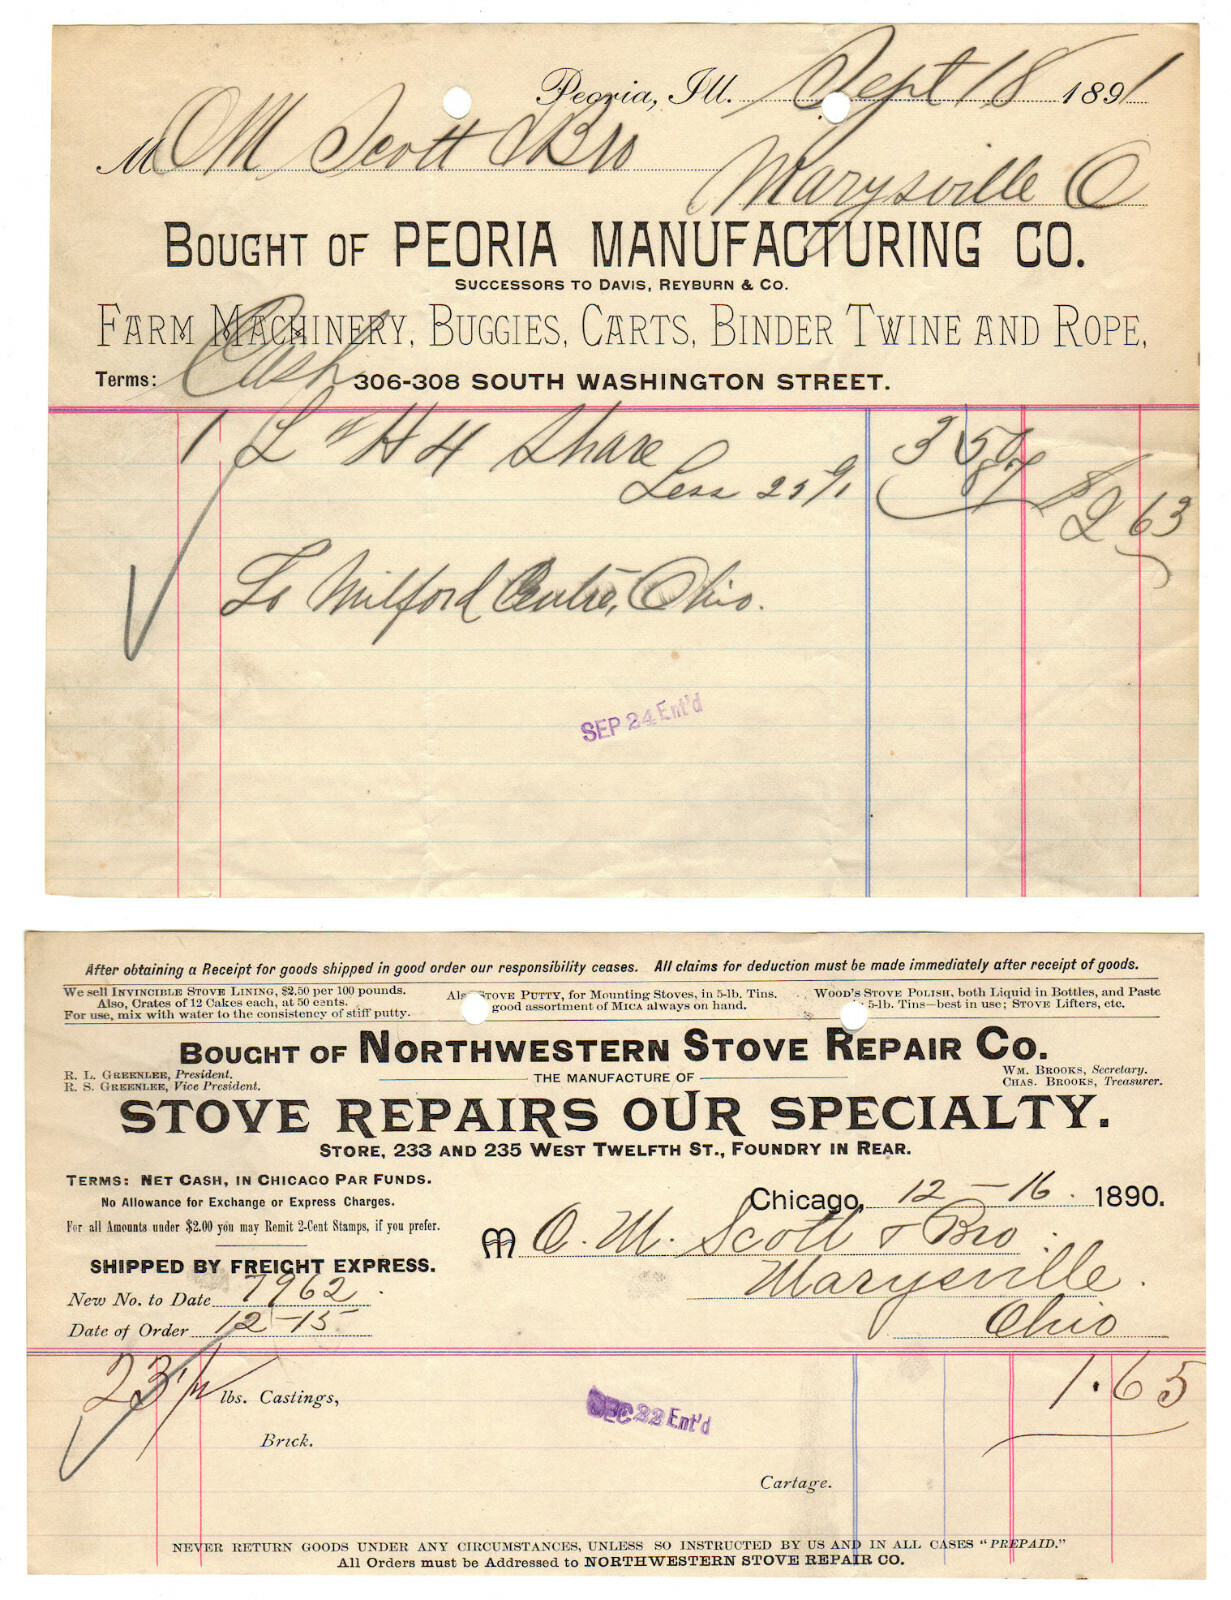 Peoria, Ill. Sept 18 1891
M OM Scott & Bro
Marysville O
BOUGHT OF PEORIA MANUFACTURING CO.
SUCCESSORS TO DAVIS, REYBURN & CO.
FARM MACHINERY, BUGGIES, CARTS, BINDER TWINE AND ROPE,
Terms: Cash 306-308 SOUTH WASHINGTON STREET.
1 L & H 4 Share 3 50
Less 25% 87 $2 63
To Milford Centre, Ohio.
SEP 24 Ent'd
After obtaining a Receipt for goods shipped in good order our responsibility ceases. All claims for deduction must be made immediately after receipt of goods.
We sell INVINCIBLE STOVE LINING, $2,50 per 100 pounds.
Also, Crates of 12 Cakes each, at 50 cents.
For use, mix with water to the consistency of stiff putty.
Als STOVE PUTTY, for Mounting Stoves, in 5-lb. Tins.
good assortment of MICA always on hand.
WOOD'S STOVE POLISH, both Liquid in Bottles, and Paste
5-lb. Tins—best in use; STOVE LIFTERS, etc.
BOUGHT OF NORTHWESTERN STOVE REPAIR CO.
R. L. GREENLEE, President.
R. S. GREENLEE, Vice President.
THE MANUFACTURE OF
WM. BROOKS, Secretary.
CHAS. BROOKS, Treasurer.
STOVE REPAIRS OUR SPECIALTY.
STORE, 233 AND 235 WEST TWELFTH ST., FOUNDRY IN REAR.
TERMS: NET CASH, IN CHICAGO PAR FUNDS.
No Allowance for Exchange or Express Charges.
For all Amounts under $2.00 you may Remit 2-Cent Stamps, if you prefer.
SHIPPED BY FREIGHT EXPRESS.
New No. to Date 7962.
Date of Order 12-15
Chicago, 12-16. 1890.
M O. M. Scott & Bro.
Marysville.
Ohio
23 1/2 lbs. Castings, 1.65
Brick.
DEC 22 Ent'd
Cartage.
NEVER RETURN GOODS UNDER ANY CIRCUMSTANCES, UNLESS SO INSTRUCTED BY US AND IN ALL CASES "PREPAID."
All Orders must be Addressed to NORTHWESTERN STOVE REPAIR CO.